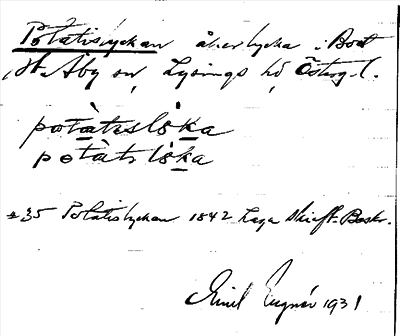 Potatislyckan åkerlycka i Bost
St. Åby sn, Lysings hd Österg. l.
potàtɩsløka
potàtsløka
± 35 Potatislyckan 1842 Laga Skift. Beskr.
Emil Eugnér 1931